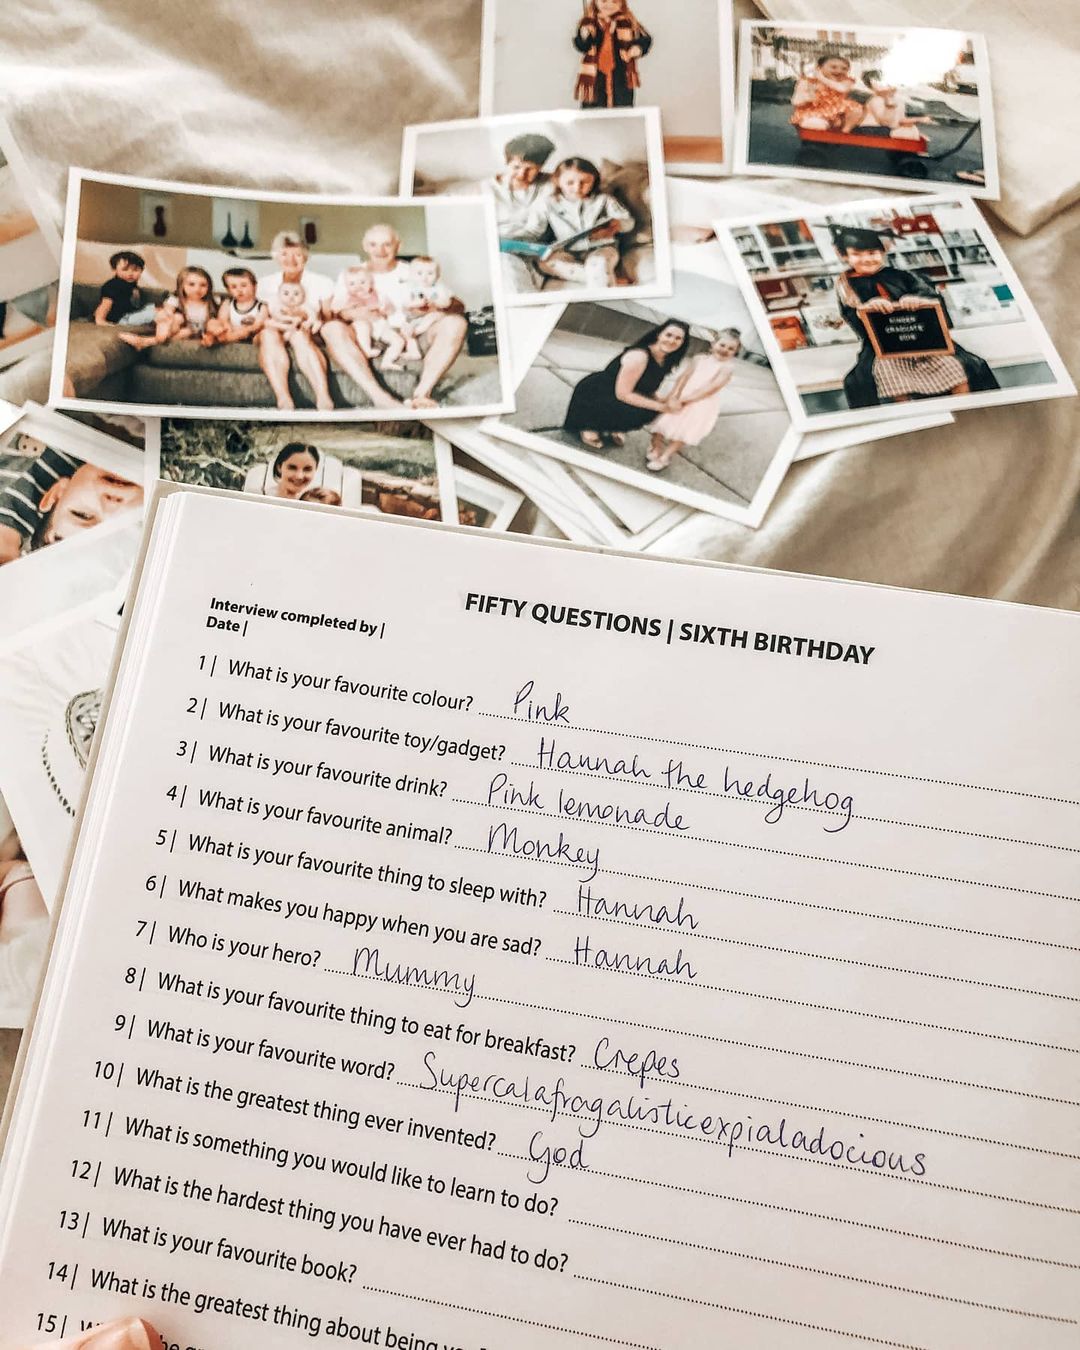 KINDER
GRADUATE
FIFTY QUESTIONS | SIXTH BIRTHDAY
Interview completed by |
Date |
1 | What is your favourite colour? Pink
2 | What is your favourite toy/gadget? Hannah the hedgehog
3 | What is your favourite drink? Pink lemonade
4 | What is your favourite animal? Monkey
5 | What is your favourite thing to sleep with? Hannah
6 | What makes you happy when you are sad? Hannah
7 | Who is your hero? Mummy
8 | What is your favourite thing to eat for breakfast? Crepes
9 | What is your favourite word? Supercalafragalisticexpialadocious
10 | What is the greatest thing ever invented? God
11 | What is something you would like to learn to do?
12 | What is the hardest thing you have ever had to do?
13 | What is your favourite book?
14 | What is the greatest thing about being
15 |